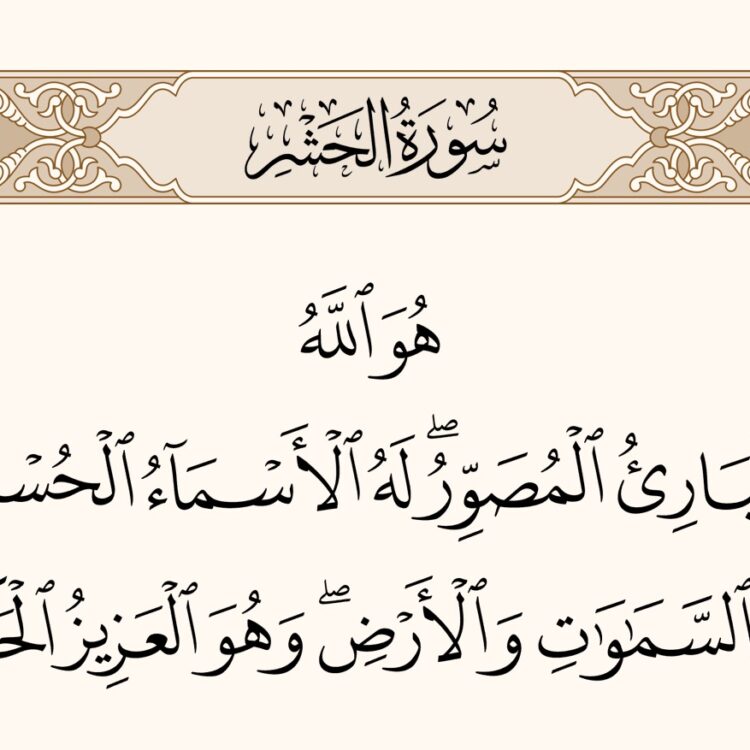 سُورَةُ الحَشْرِ
هُوَ ٱللَّهُ
ٱلۡمُصَوِّرُۖ لَهُ ٱلۡأَسۡمَآءُ
ٱلسَّمَٰوَٰتِ وَٱلۡأَرۡضِۖ وَهُوَ ٱلۡعَزِيزُ